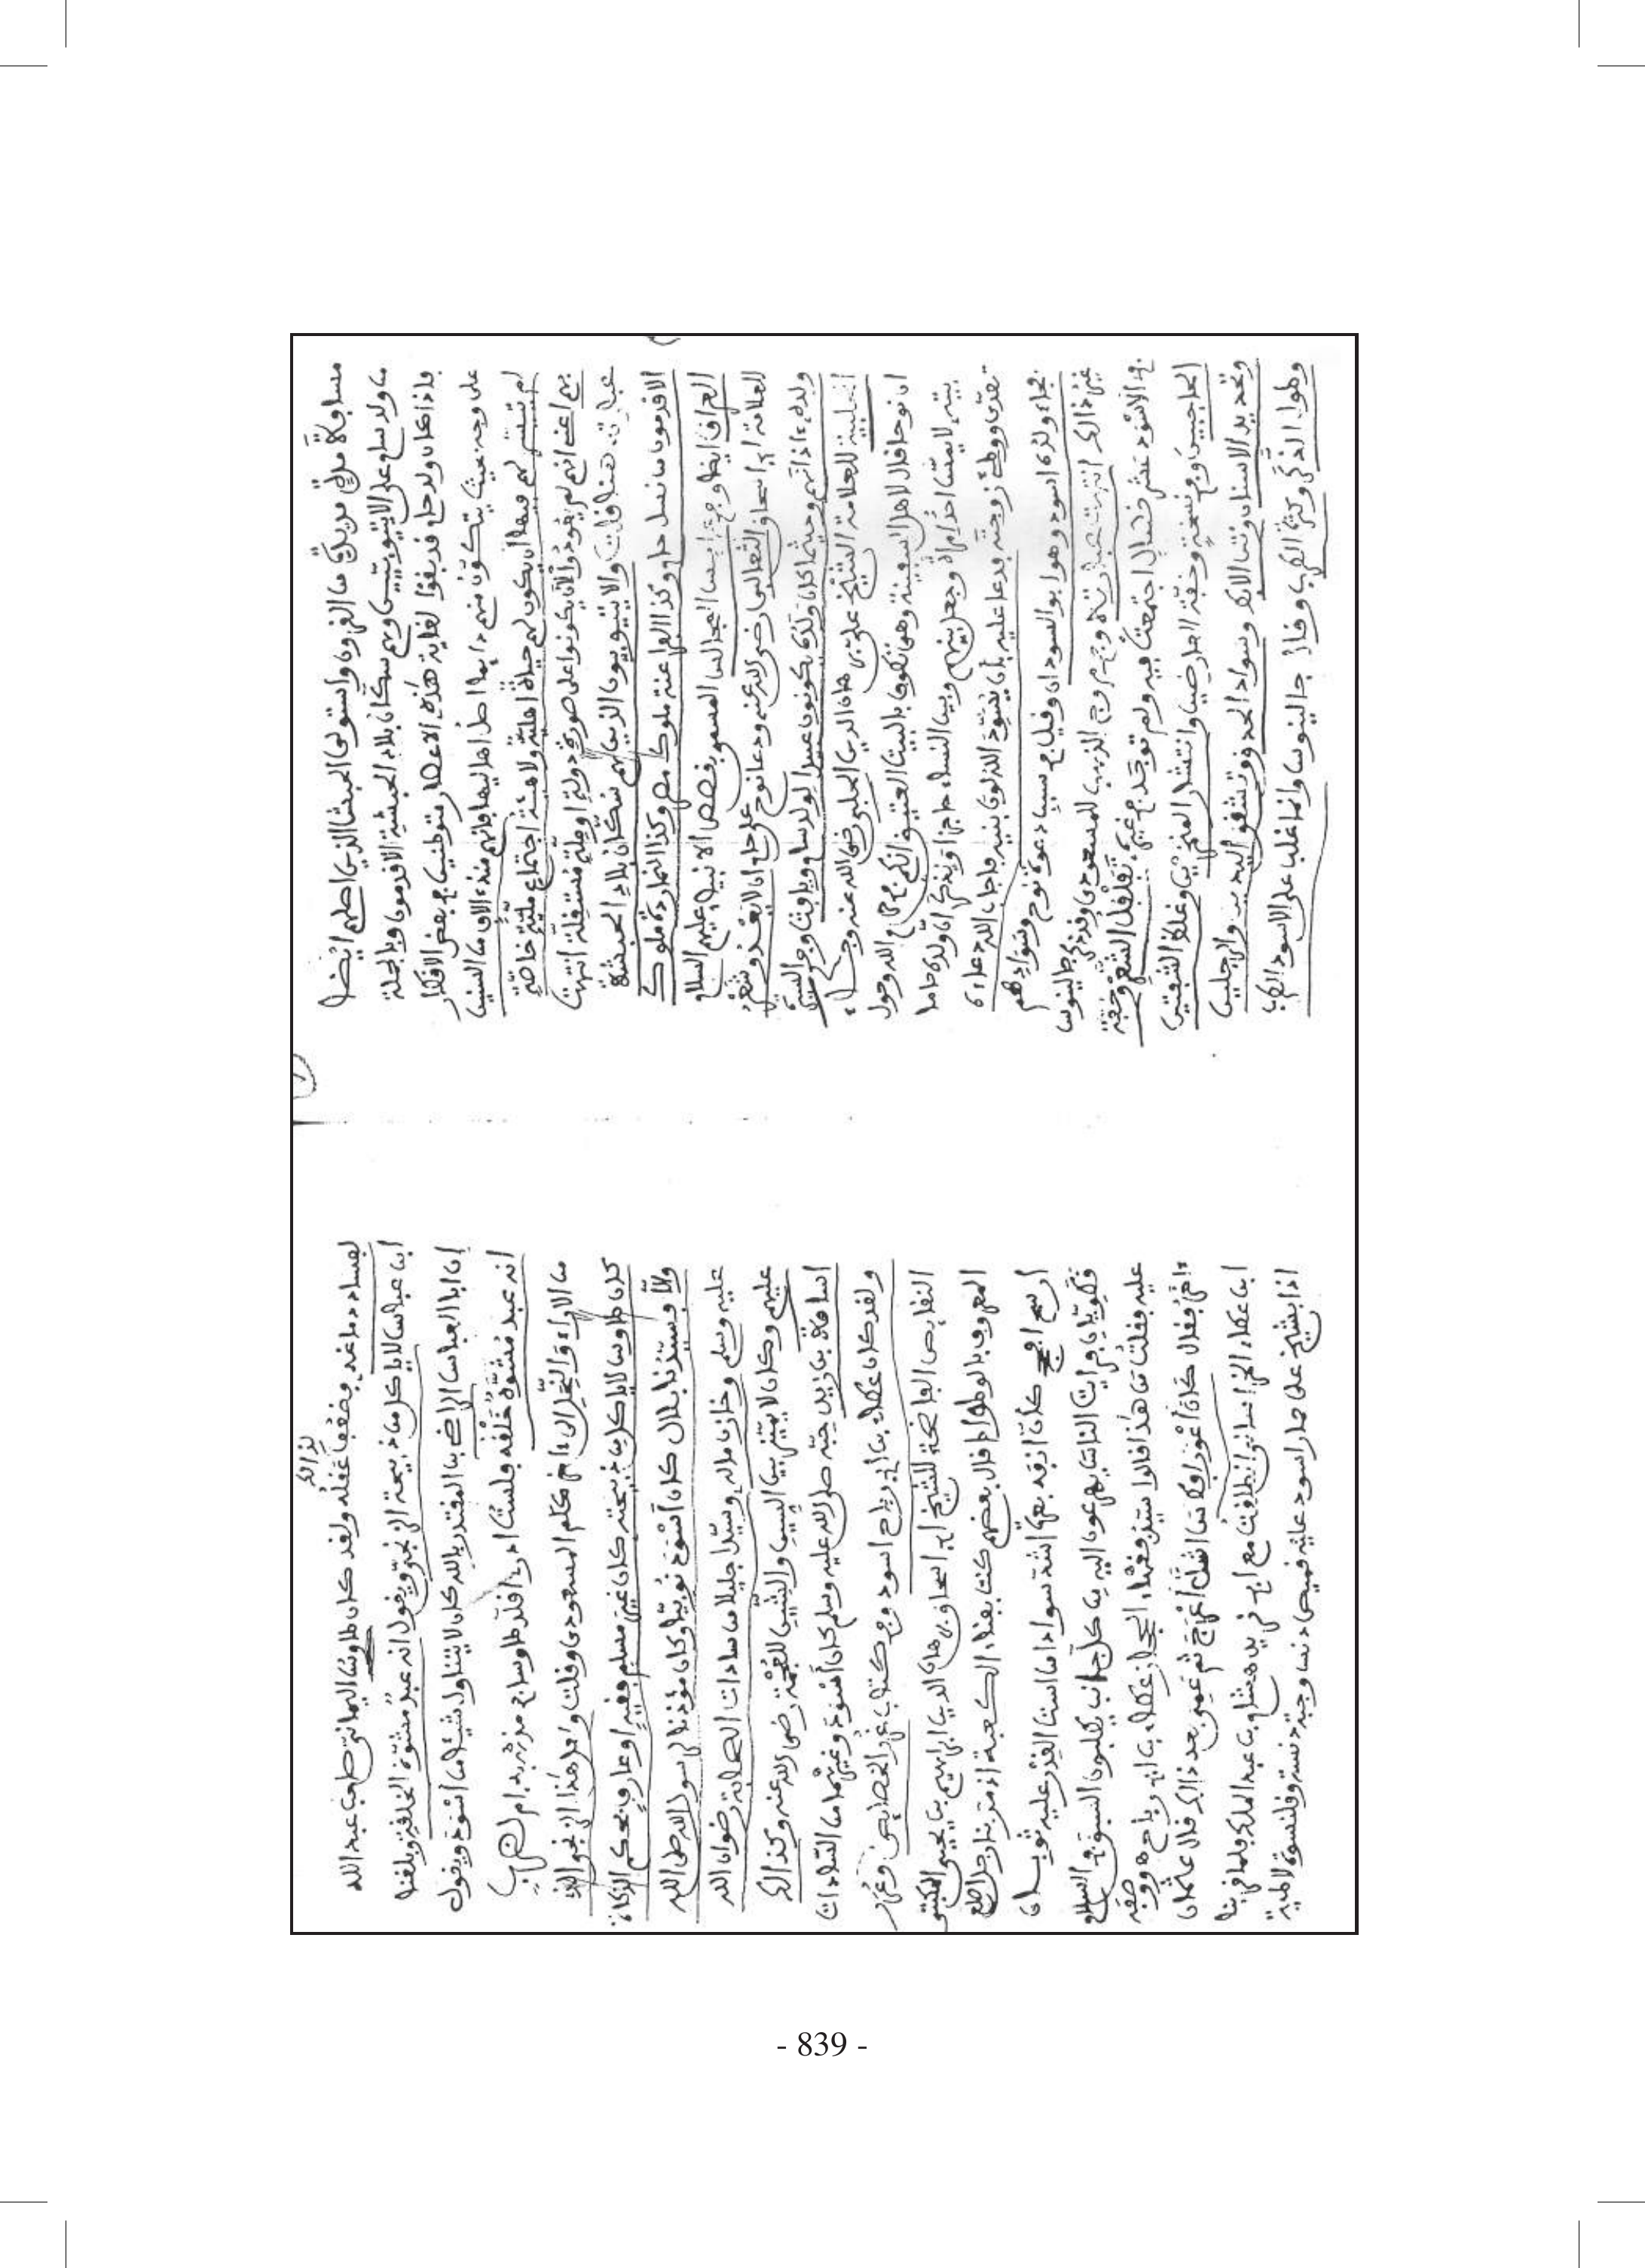 من القرون واستولى الحبشا الذين اصلهم ايضا
من ولد سام على الاتيوبيين وهم سكان بلاد الحبشة الاقدمون وبالجملة
فاذا كان ولد حام قد بقوا لغاية هذه الاعصار متوطنين في بعض الافكار
على وجه بحيث يتكون منهم دايما اصل اهاليها فانهم منذ ءالاف من السنين
لم تتيسر لهم فيها ان يكون لهم حياة اهلية ولا هيئة اجتماع ملية خاصة
بهم اعني انهم لم يعودوا لان يكونوا على صورة دولة او ملة مستقلة انتهت
عبارته هنا قلت والاتيوبيون الذين هم سكان بلاد الحبشة
الاقدمون من نسل حام وكذا الفراعنة ملوك مصر وكذا النماردة ملوك
العراق ايضا وفي المجالس المسمى بقصص الانبياء عليهم السلام
للعلامة ابي اسحاق الثعالبي رضي الله عنه ودعا نوح على حام ان لا يعدو شعر
ولده ءاذانهم وحيثما كان ولده يكونون عبيدا لولد سام ويافث وفي السيرة
الحلبية للعلامة الشيخ علي برهان الدين الحلبي رضي الله عنه وجاء
ان نوحا قال لاهل السفينة وهي تطوف بالبيت العتيق انكم في حرم الله وحول
بيته لا يمس احد امراة وجعل بينهم وبين النساء حاجزا ويذكر ان ولده حاما
تعدى ووطئ زوجته فدعا عليه بان يسود الله لون بنيه فاجاب الله دعاءه
فجاء ولده اسود وهو ابو السودان وقيل في سبب دعوة نوح وسوادهم
غير ذالك انتهت عبارته وفي مروج الذهب للمسعودي وقد ذكر جالينوس
في الاسود عشر خصال اجتمعت فيه ولم توجد في غيره تفلفل الشعر وخفة
الحاجبين وانتشار المنخرين وغلظ الشفتين
وتحديد الاسنان ونتن الابط وسواد الحدق وتشقق اليدين والرجلين
وطول الذكر وكثرة الطرب وقال جالينوس وانما غلب على الاسود الطرب
لفساد دماغه فضعف عقله ولقد كان طاوس اليماني صاحب عبد الله
بن عباس لا ياكل من ذبيحة الزنجي ويقول انه عبد مشوه الخلقة وبلغنا
ان ابا العباس الراضي بن المقتدر بالله كان لا يتناول شيئا من اسود ويقول
انه عبد مشوه خلقه فلست ادري اقلد طاوسا في مذهبه ام لضرب
من الاراء والنحل الى ءاخر كلام المسعودي قلت
كان طاوس لا ياكل من ذبيحته كان غير مسلم
وسيدنا بلال كان اسود نوبيا وكان مؤذنا لرسول الله صلى الله
عليه وسلم وخازن ماله وسيدا جليلا من سادات الصحابة رضوان الله
عليهم وكان لا يميز بين السين والشين للعجمة رضي الله عنه وكذالك
اسامة بن زيد حبه صلى الله عليه وسلم كان اسود وغيرهما من السادات
ولقد كان عطاء بن ابي رباح اسود وفي كتاب غرر الخصايص وعرر
النقايص الفاضحة للشيخ ابي اسحاق برهان الدين ابراهيم بن يحيى الكتبي
المعروف بالوطواط قال بعضهم كنت بفناء الكعبة اذ مر بنا رجل اصلع
كان انفه بعرة اشد سوادا من است القدر عليه ثوبان
من كل جانب السلام
عليه فقلت من هذا قالوا سيد فقهاء الحجاز عطاء بن ابي رباح
كان اعور افطس اشل اعرج ثم عمي بعد ذالك قال عثمان
بن عطاء الخراساني انطلقت مع ابي نريد هشام بن عبد الملك فلما قربنا
اذا بشيخ على حمار اسود عليه قميص دنس وجبة دنسة وقلنسوة لاطية
- 839 -